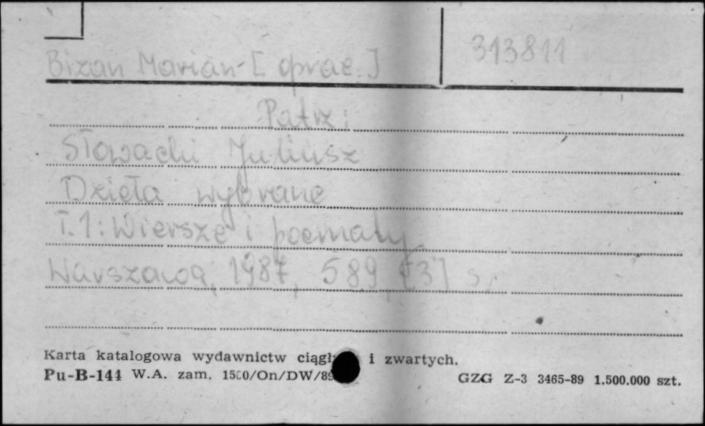 Bizan Marian [oprac.]
313811
Patrz:
Słowacki Juliusz
Dzieła wybrane
T.1: Wiersze i poematy
Warszawa, 1987, 589, [3] s.
Karta katalogowa wydawnictw ciągł i zwartych.
Pu-B-144 W.A. zam. 1500/On/DW/89 GZG Z-3 3465-89 1.500.000 szt.